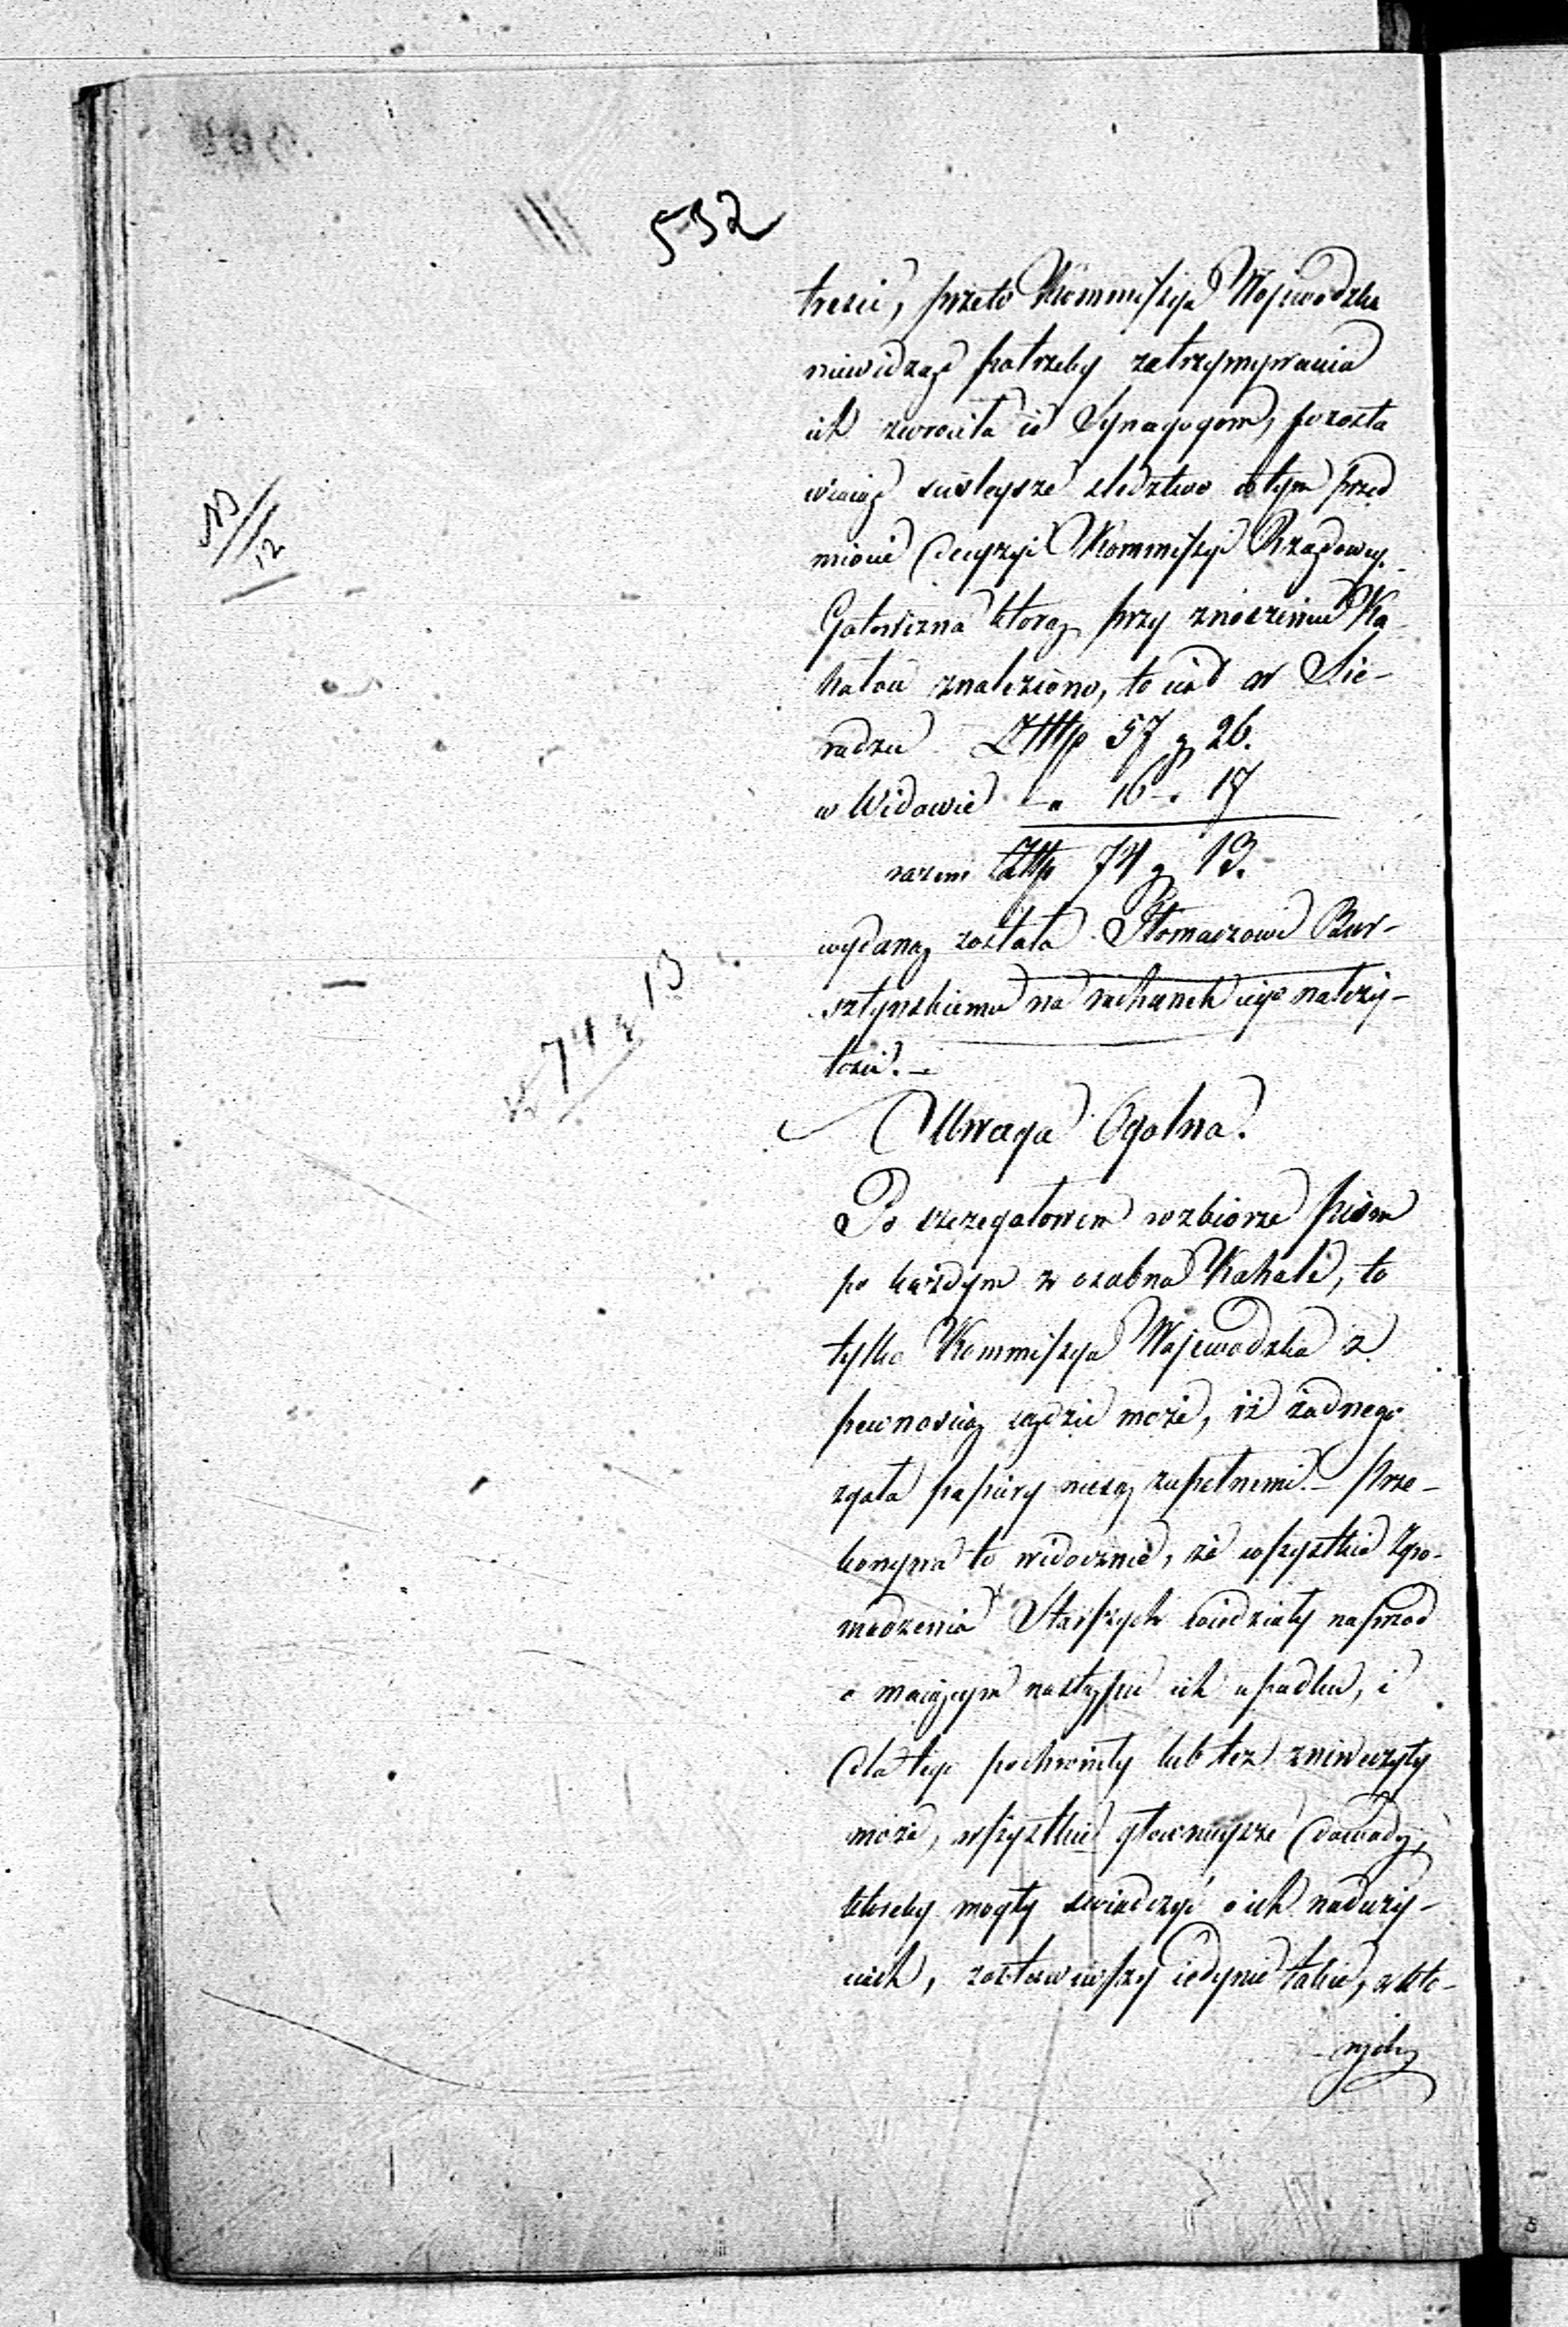 532
treści, przeto Kommissya Wojewodzka
niewidząc potrzeby zatrzymywania
ich zwrociła ie Synagogom, pozosta
wiaiąc scisleysze sledztwo o tym przed
miocie decyzyi Kommissyi Rządowey.
Gotowizna ktorą przy znoszeniu Ka-
hałow znaleziono, to iest w Sie-
radzu Złtp 57 g 26.
w Widawie — " 16 - " 17
razem Złtp 74 g 13.
wydaną została Tłomaczowi Bur-
sztynskiemu na rachunek iego należy-
tości. —
Uwaga Ogolna.
Po szczegołowem rozbiorze pism
po każdym z osobna Kahale, to
tylko Kommissya Wojewodzka z
pewnością sądzić może, iż żadnego
zgoła papiery niesą zupełnemi. — Prze-
konywa to widocznie, że wszystkie Zgro-
madzenia Starszych wiedziały naprzod
o maiącym nastąpić ich upadku, i
dla tego pochroniły lub też zniweczyły
może, wszystkie głownieysze dowody,
ktoreby mogły swiadczyć o ich naduży-
ciach, zostawiwszy iedynie takie, z kto-
rychby
N3
12
74 g 13